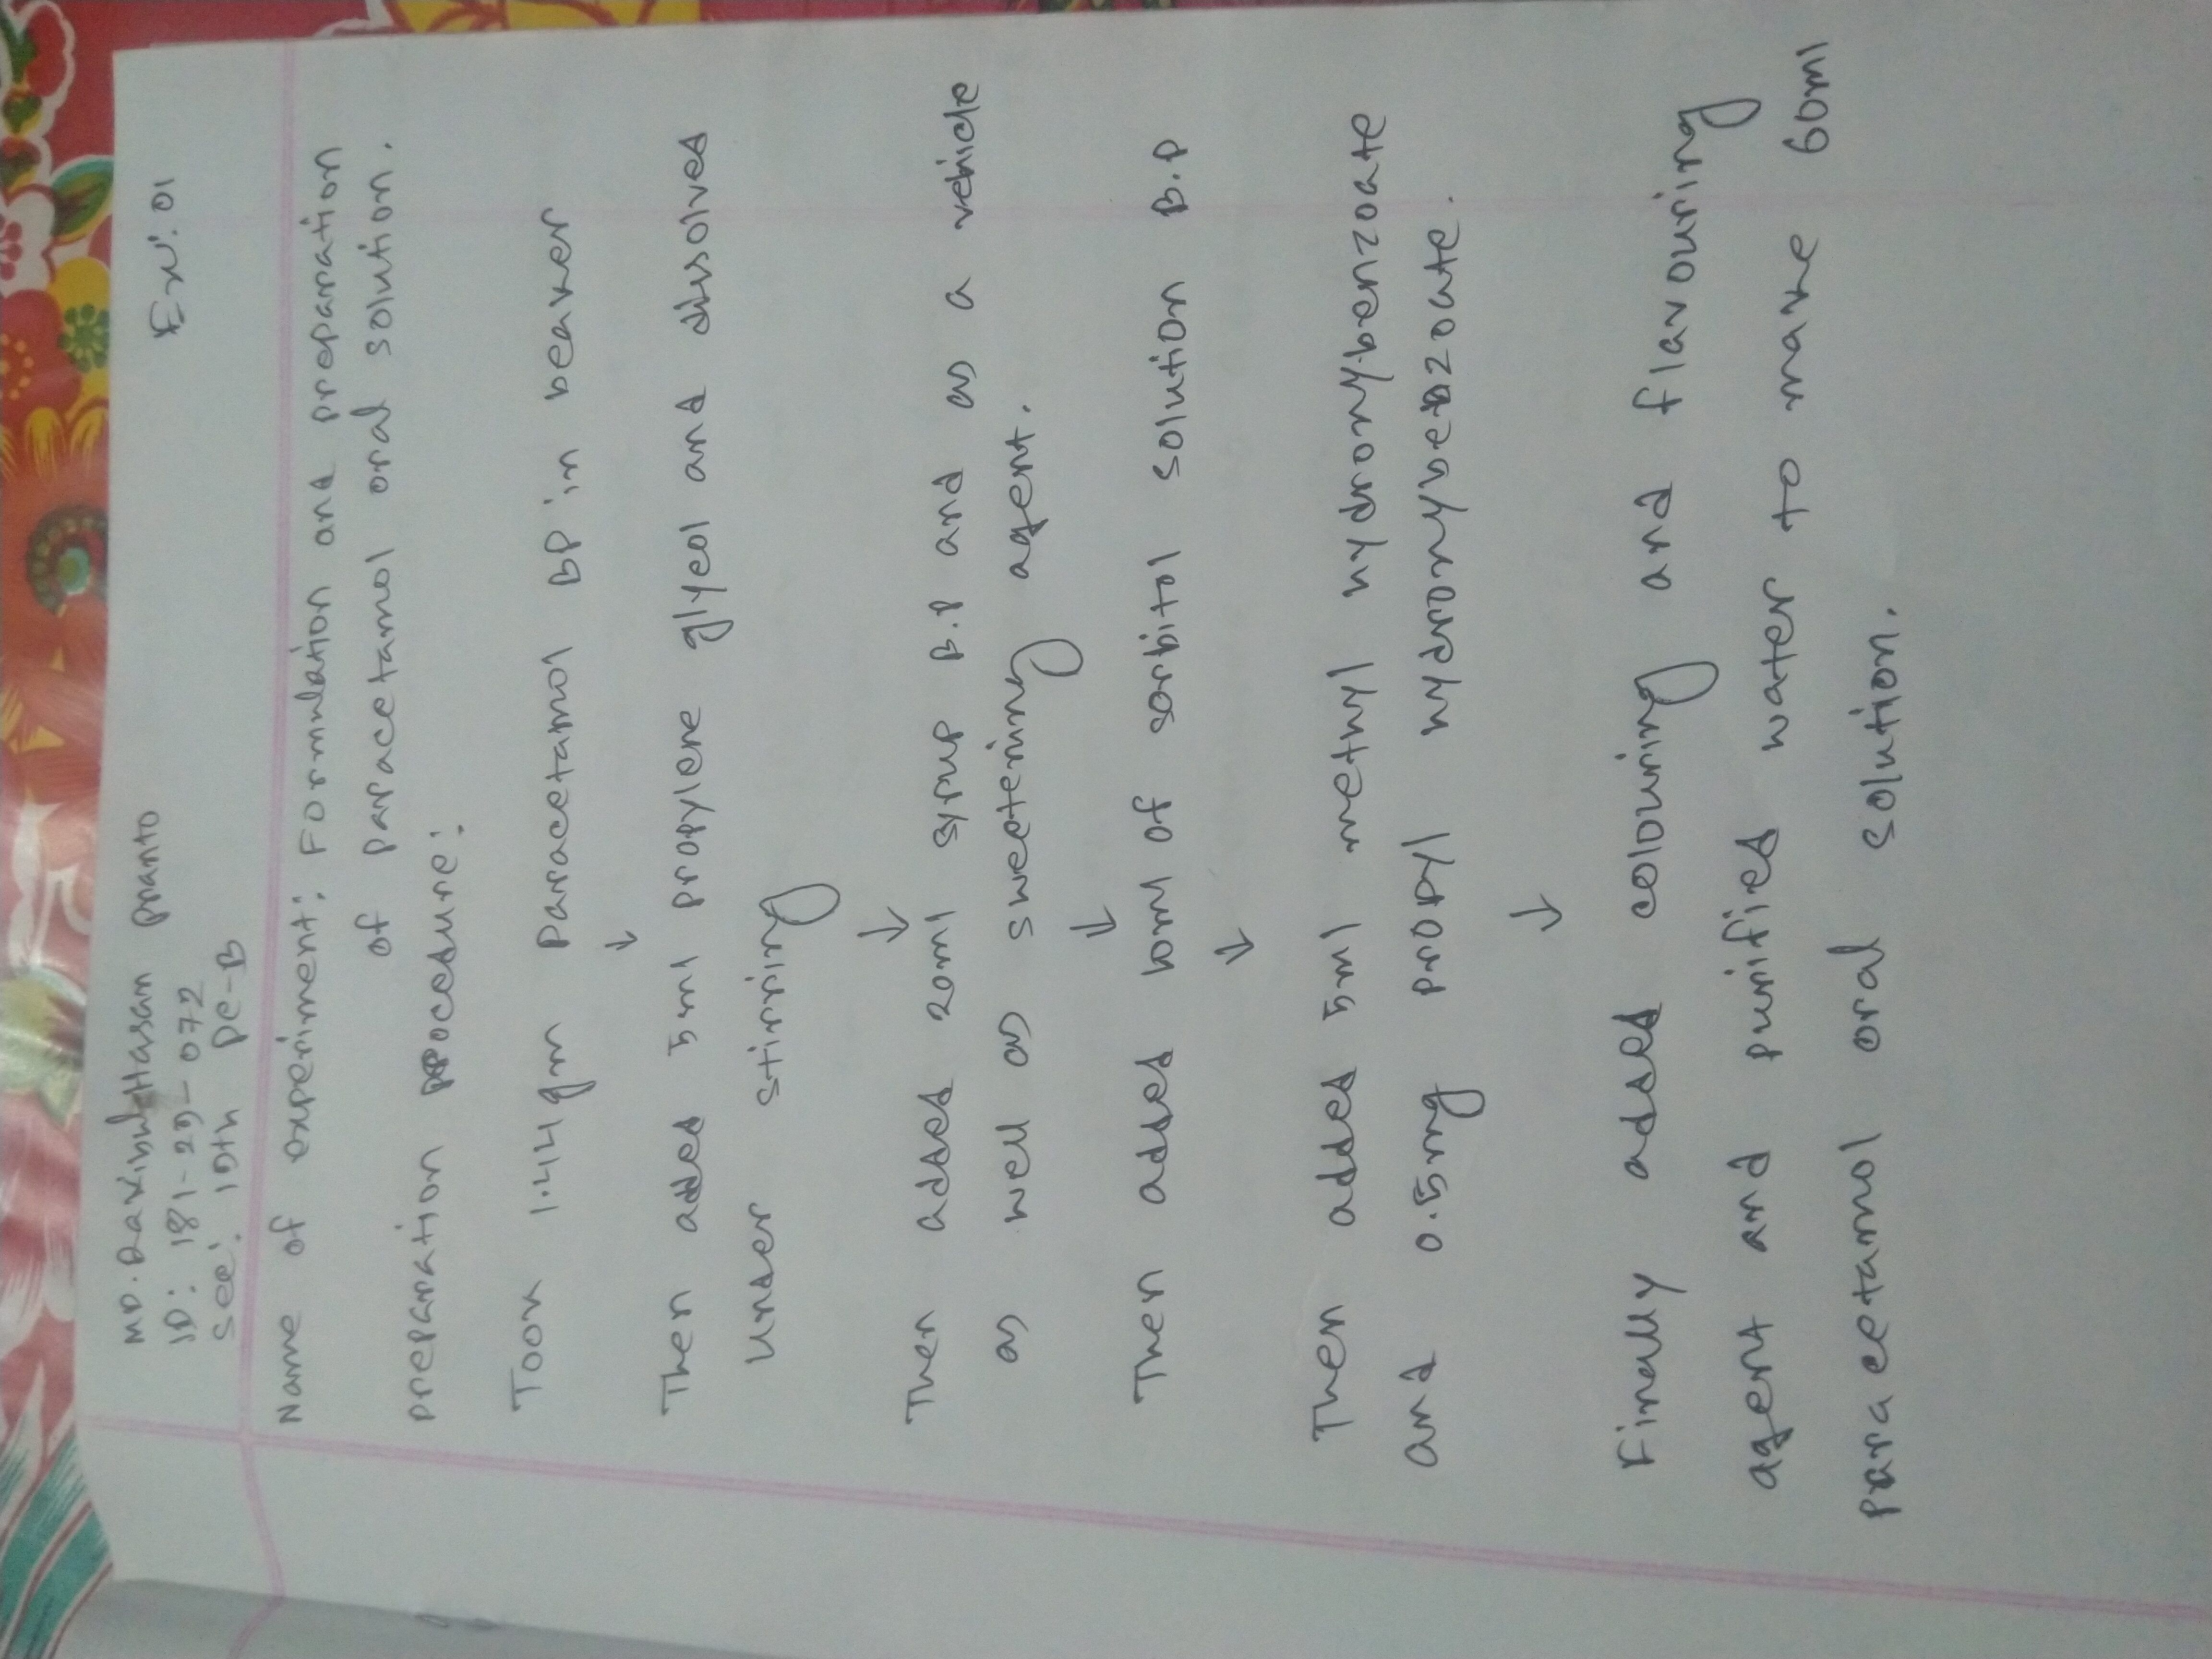 MD. Rakibul Hasan Pranto
Ex: 01
ID: 181-29-072
Sec: 19th PC-B
Name of experiment: Formulation and preparation
of paracetamol oral solution.
preparation procedure:
Took 1.44gm Paracetamol BP in beaker
↓
Then added 5ml propylene glycol and dissolved
under stirring
↓
Then added 20ml syrup B.P and as a vehicle
as well as sweetening agent.
↓
Then added 10ml of sorbitol solution B.P
↓
Then added 5ml methyl hydroxybenzoate
and 0.5mg propyl hydroxybenzoate.
↓
Finally added colouring and flavouring
agent and purified water to make 60ml
paracetamol oral solution.